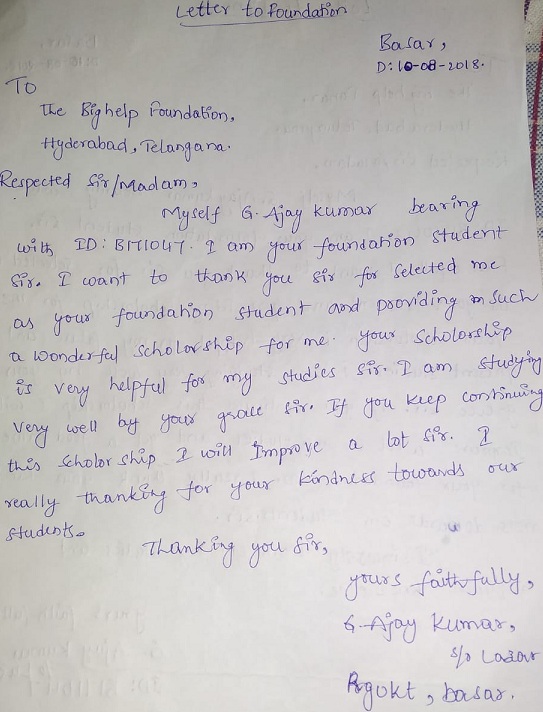 Letter to foundation
Basar,
D: 10-08-2018.
To
The Bighelp Foundation,
Hyderabad, Telangana.
Respected Sir/Madam,
Myself G. Ajay Kumar bearing
with ID: B171047. I am your foundation student
sir. I want to thank you sir for selected me
as your foundation student and providing such
a wonderful scholarship for me. your Scholorship
is very helpful for my studies sir. I am studying
very well by your grace sir. If you keep continuing
this scholor ship I will Improve a lot sir. I
really thanking for your kindness towards our
students.
Thanking you sir,
yours faithfully,
G. Ajay Kumar,
s/o Lazar
Rgukt, basar.